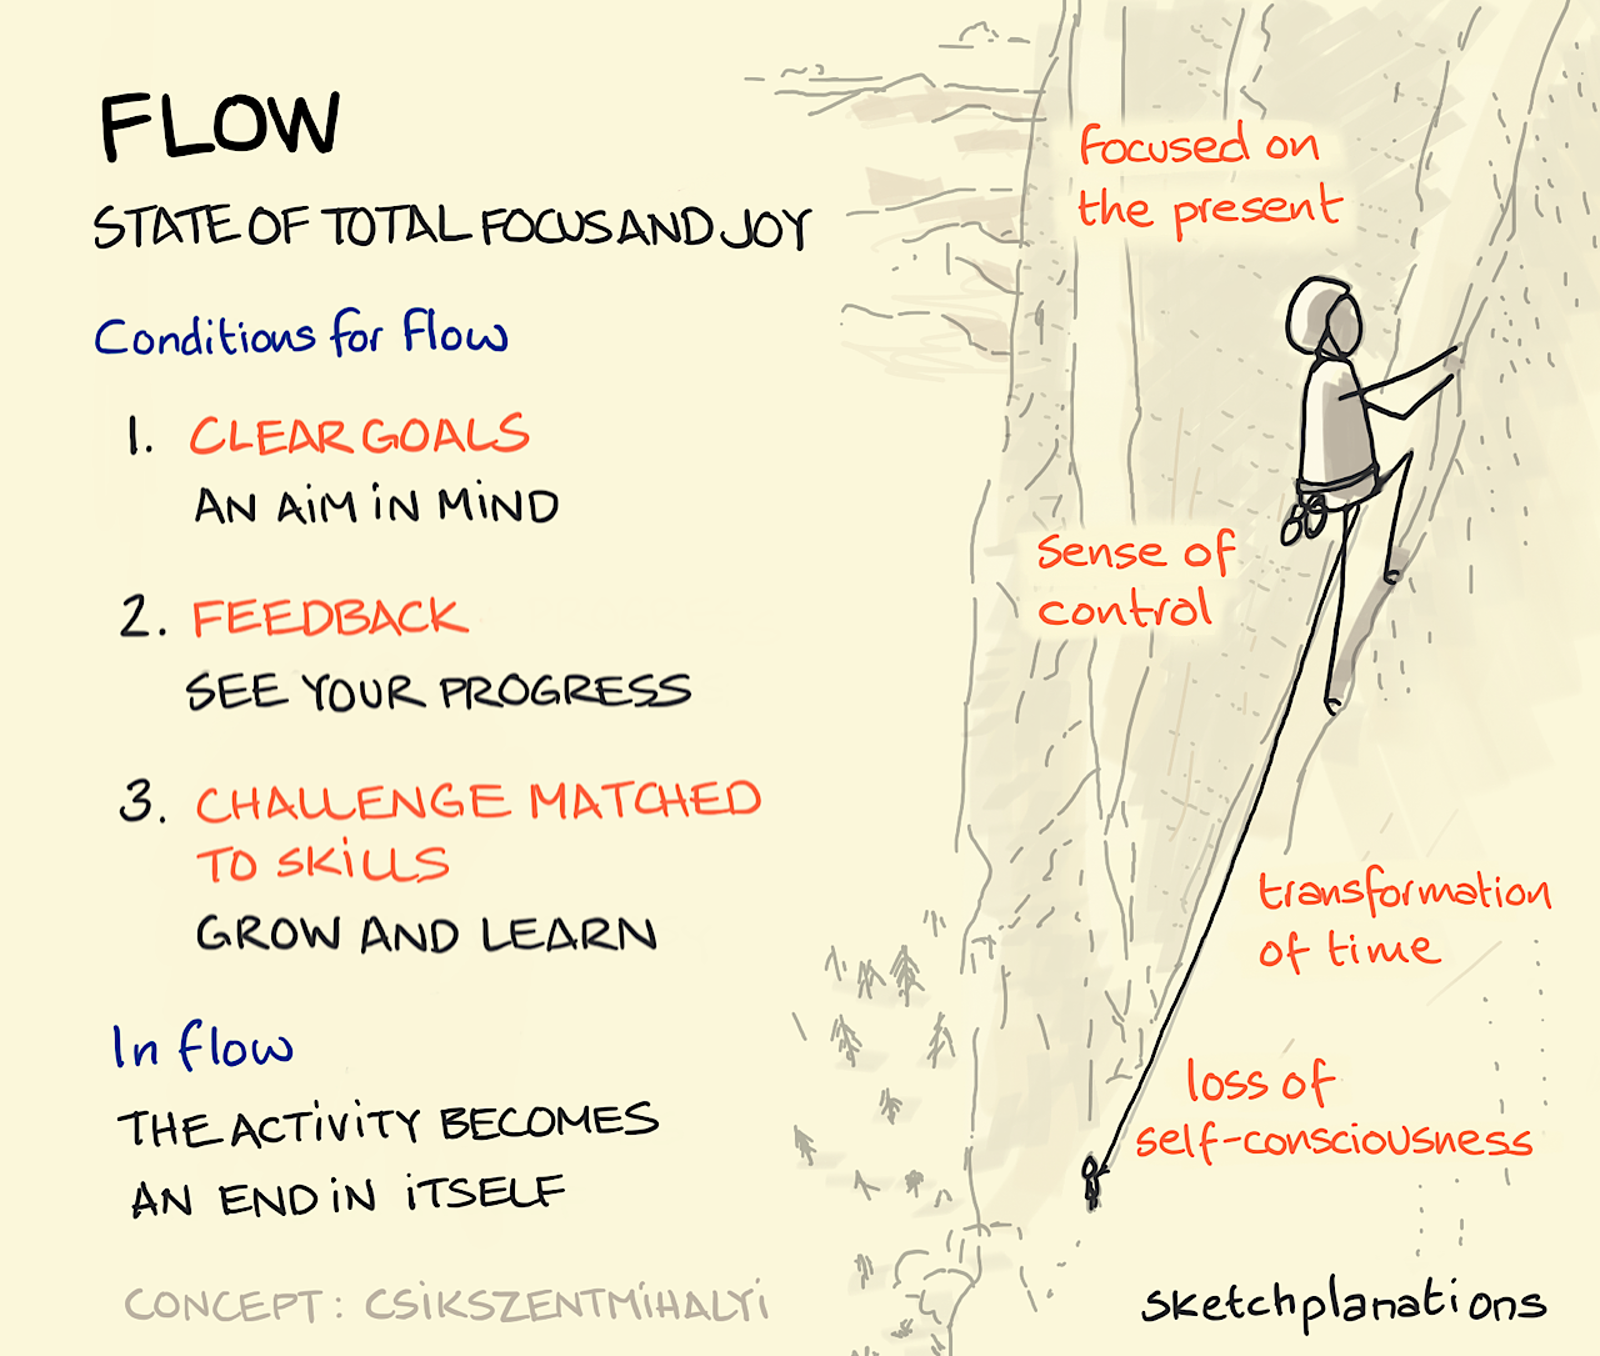 FLOW
STATE OF TOTAL FOCUS AND JOY
Conditions for Flow
1. CLEAR GOALS
AN AiM iN MiND
2. FEEDBACK
SEE YOUR PROGRESS
3. CHALLENGE MATCHED
TO SKiLLS
GROW AND LEARN
In flow
THE ACTiViTY BECOMES
AN END iN iTSELF
CONCEPT: CSiKSZENTMiHALYi
focused on
the present
sense of
control
transformation
of time
loss of
self-consciousness
sketchplanations